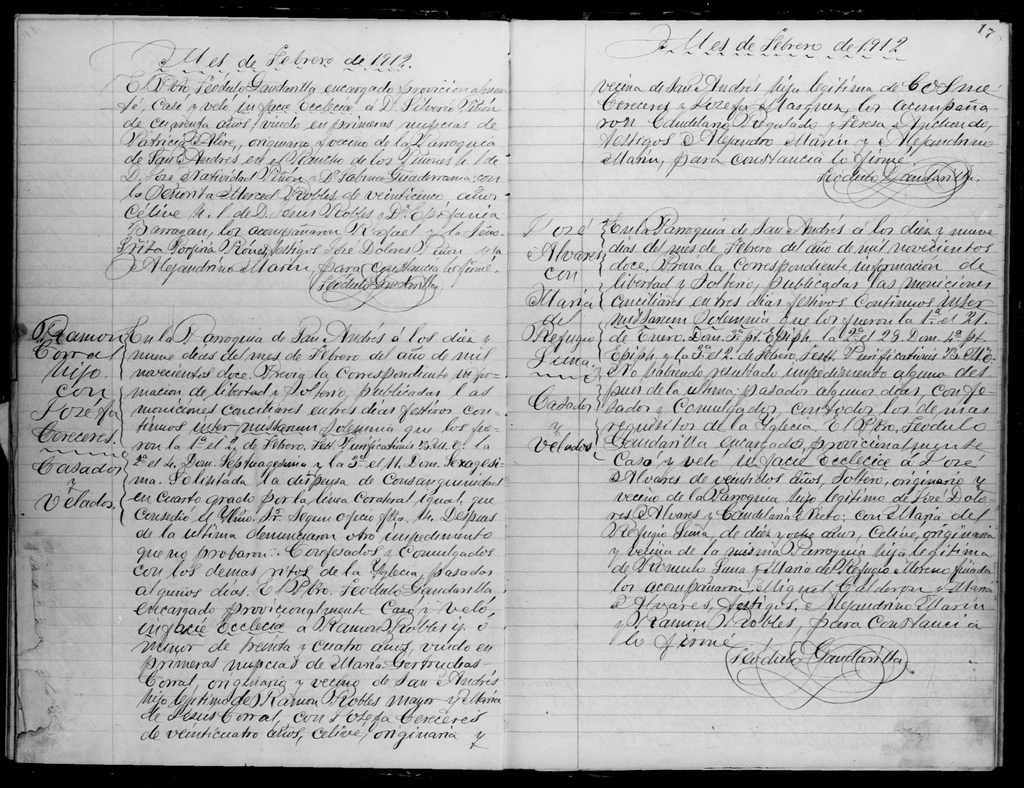 Mes de Febrero de 1912.
El Pbro. Teódulo Gandarilla encargado provicionalmen-
te, casó y veló in facie Ecclecie à D. Silverio Piñon
de cuarenta años, viudo en primeras nupcias de
Patricia Olive, originario y vecino de la Parroquia
de San Andrés en el Rancho de los Piñones h. l. de
D. José Natividad Piñon y Dª Sabina Guaderrama con
la Señorita Merced Robles de veinticinco años
Celive h. l. de D. Jesus Robles y Dª Epifania
Barragan, los acompañaron Rafael y la Seño-
rita Porfiria Rojas, testigos José Dolores Piñon y
Alejandrino Marin, para constancia lo firmé.
Teódulo Gandarilla
Ramon
Corral
hijo
con
Josefa
Cereceres.
Casados
y
Velados.
En la Parroquia de San Andrés á los diez y
nueve dias del mes de Febrero del año de mil
novecientos doce. Previa la correspondiente infor-
macion de libertad y Solterio, publicadas las
moniciones conciliares en tres dias festivos con-
tinuos inter missarum solemnia que los fue-
ron la 1ª el 2 de Febrero. Fest. Purificationis B. M. V. la
2ª el 4. Dom. Septuagesima y la 3ª el 11. Dom. Sexagesi-
ma. Solicitada la dispensa de Consanguinidad
en cuarto grado por la linea Coratral igual, que
Consedió el Yllmo. Sr. Segun oficio fha. Despues
de la ultima denunciaron otro impedimento
que no probaron. Confesados y Comulgados
con los demas ritos de la Yglecia, pasados
algunos dias. El Pbro. Teodulo Gandarilla
encargado provicionalmente Casó y Veló,
in facie Ecclecie á Ramon Robles hijo ó
menor de treinta y cuatro años, viudo en
primeras nupcias de Maria Gertrudias
Corral, originario y vecino de San Andrés
hijo legitimo de Ramon Robles mayor y Maria
de Jesus Corral, con Josefa Cereceres
de veinticuatro años, celive, originaria y
17
Mes de Febrero de 1912
vecina de San Andrés hija legitima de Cosme
Cereceres y Josefa Marquez, los acompaña
ron Candelario Regalado y Teresa Apichondo,
testigos Alejandro Marin y Alejandrino
Marin, para constancia lo firmé.
Teódulo Gandarilla.
José
Alvares
con
Maria
del
Refugio
Luna
Casados
y
Velados
En la Parroquia de San Andrés á los diez y nueve
dias del mes de Febrero del año de mil novecientos
doce. Previa la correspondiente informacion de
libertad y Solterio, publicadas las moniciones
conciliares en tres dias festivos continuos inter
missarum Solemnia que los fueron la 1ª el 21.
de Enero. Dom. 3ª pt. Epiph. la 2ª el 28 Dom. 4ª pt.
Epiph. y la 3ª el 2 de Febrero, fest. Purificationis B. M. V.
No habiendo resultado impedimento alguno des-
pues de la ultima: pasados algunos dias, confe-
sados y Comulgados, con todos los demas
requisitos de la Yglecia, El Pbro. Teodulo
Gandarilla encargado, provicionalmente
Casó y veló in facie Ecclecie á José
Alvares de veintidos años, Soltero, originario y
vecino de la Parroquia hijo legitimo de José Dolo-
res Alvares y Candelaria Nieto: con Maria del
Refugio Luna, de diez y ocho años, Celive, originaria
y vecina de la misma Parroquia hija legitima
de Romulo Luna y Maria de Refugio Moreno finada
los acompañaron Miguel Calderon y Maria
Alvares, testigos, Alejandrino Marin
y Ramon Robles, para Constancia
lo firmé
Teódulo Gandarilla